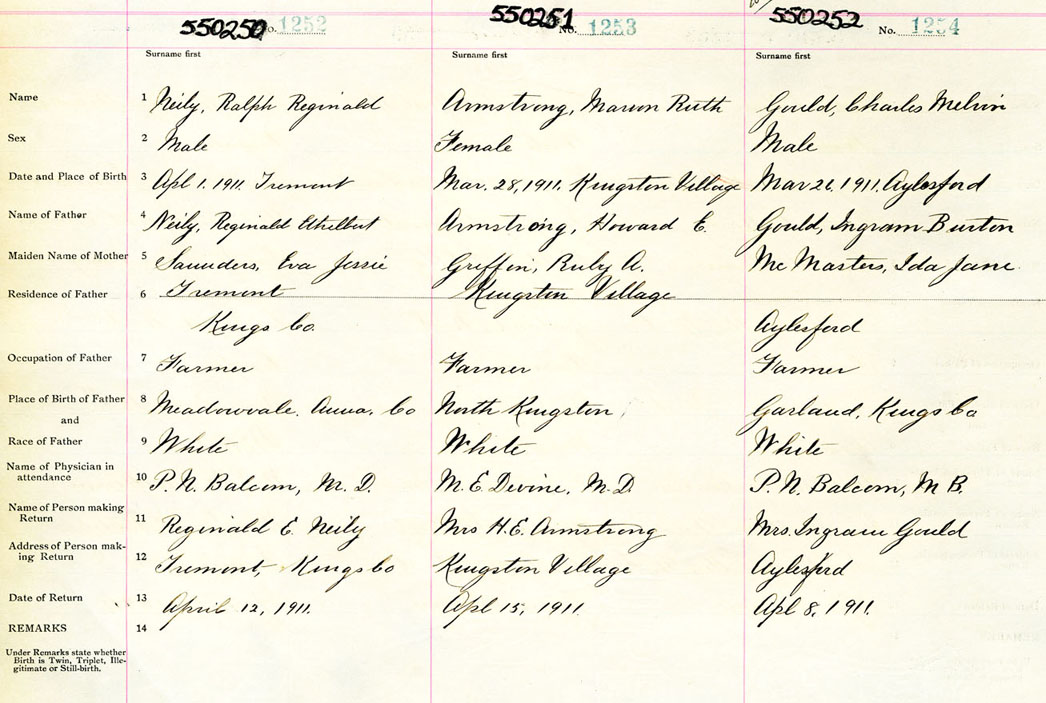 550250 No. 1252 550251 No. 1253 550252 No. 1254
Surname first Surname first Surname first
Name 1 Neily, Ralph Reginald Armstrong, Marion Ruth Gould, Charles Melvin
Sex 2 Male Female Male
Date and Place of Birth 3 Apl 1. 1911. Tremont Mar. 28, 1911. Kingston Village Mar 26. 1911. Aylesford
Name of Father 4 Neily, Reginald Ethelbert Armstrong, Howard E. Gould, Ingram Burton
Maiden Name of Mother 5 Saunders, Eva Jessie Griffin, Ruby A. Mc Masters, Ida Jane
Residence of Father 6 Tremont Kingston Village
Kings Co. Aylesford
Occupation of Father 7 Farmer Farmer Farmer
Place of Birth of Father 8 Meadowvale. Anna. Co North Kingston Garland, Kings Co
and
Race of Father 9 White White White
Name of Physician in
attendance 10 P. N. Balcom, M. D. M. E. Devine, M. D. P. N. Balcom, M B.
Name of Person making
Return 11 Reginald E. Neily Mrs H. E. Armstrong Mrs. Ingram Gould
Address of Person mak-
ing Return 12 Tremont, Kings Co Kingston Village Aylesford
Date of Return 13 April 12, 1911. Apl 15, 1911 Apl 8, 1911.
REMARKS 14
Under Remarks state whether
Birth is Twin, Triplet, Ille-
gitimate or Still-birth.